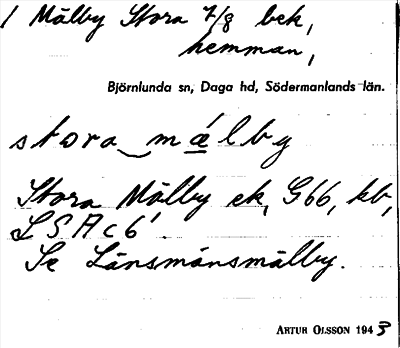 1 Mälby Stora 7/8 bek,
hemman,
Björnlunda sn, Daga hd, Södermanlands län.
stora‿mǽlby
Stora Mälby ek, G66, kb,
LSA c 6
Se Länsmansmälby.
ARTUR OLSSON 1943